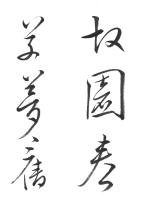 故園春
草夢舊